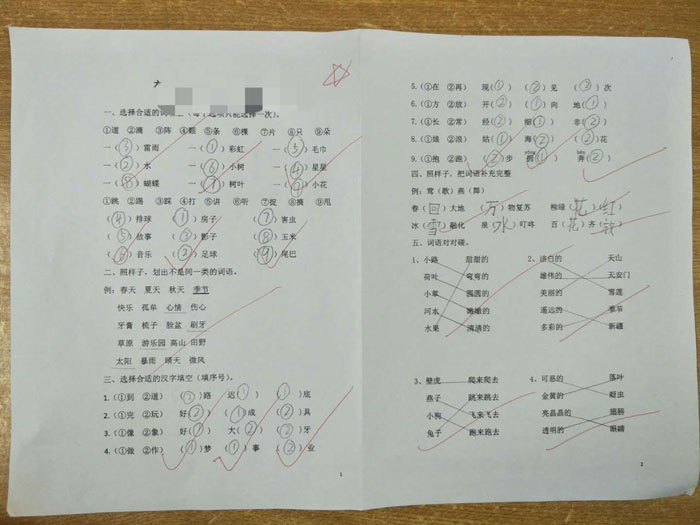 一、选择合适的词填空(每个选项只能选择一次)。
①道 ②滴 ③阵 ④颗 ⑤条 ⑥棵 ⑦片 ⑧只 ⑨朵
一(③)雷雨 一(①)彩虹 一(⑤)毛巾
一(②)水 一(⑥)小树 一(④)星星
一(⑧)蝴蝶 一(⑦)树叶 一(⑨)小花
①跳 ②踢 ③踩 ④打 ⑤讲 ⑥听 ⑦捉 ⑧摘 ⑨甩
(④)排球 (①)房子 (⑦)害虫
(⑤)故事 (③)影子 (⑧)玉米
(⑥)音乐 (②)足球 (⑨)尾巴
二、照样子,划出不是同一类的词语。
例:春天 夏天 秋天 季节
快乐 孤单 心情 伤心
牙膏 梳子 脸盆 刷牙
草原 游乐园 高山 田野
太阳 暴雨 晴天 微风
三、选择合适的汉字填空(填序号)。
1.(①到 ②道) (②)路 迟(①) (①)底
2.(①完 ②玩) 好(②) (①)成 (②)具
3.(①像 ②象) 好(①) 大(②) (②)牙
4.(①做 ②作) (①)梦 (①)事 (②)业
1
5.(①在 ②再) 现(①) (②)见 (②)次
6.(①方 ②放) 开(②) (①)向 地(①)
7.(①长 ②常) 经(②) 细(①) 非(②)
8.(①娘 ②浪) 姑(①) 海(②) (②)花
9.(①抱 ②跑) (②)步 拥(①) 奔(②)
四、照样子,把词语补充完整
例:莺(歌)燕(舞)
春(回)大地 (万)物复苏 柳绿(花)(红)
冰(雪)融化 泉(水)叮咚 百(花)齐(放)
五、词语对对碰。
1、小路 甜甜的 2、洁白的 天山
荷叶 弯弯的 雄伟的 天安门
小草 圆圆的 美丽的 雪莲
河水 嫩嫩的 遥远的 季节
水果 清清的 多彩的 新疆
3、壁虎 爬来爬去 4、可恶的 落叶
燕子 跳来跳去 金黄的 蚜虫
小狗 飞来飞去 亮晶晶的 翅膀
兔子 跑来跑去 透明的 眼睛
2